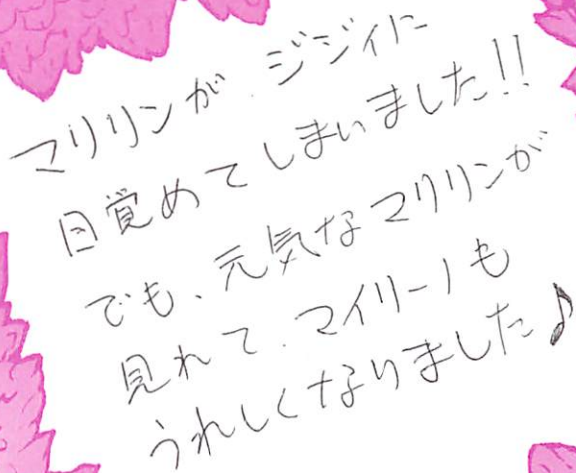 マリリンが、ジジイに
目覚めてしまいました!!
でも、元気なマリリンが
見れて、マイリーノも
うれしくなりました♪